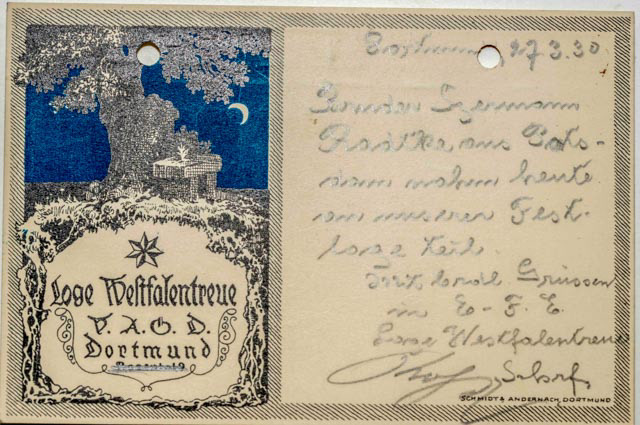 Loge Westfalentreue
V. A. O. D.
Dortmund
Dortmund, 27.3.30
Bruder Hermann
Radtke aus Pots-
dam nahm heute
an unserer Fest-
loge teil.
Mit brdl. Grüssen
in E. F. E.
Loge Westfalentreue
SCHMIDT & ANDERNACH, DORTMUND